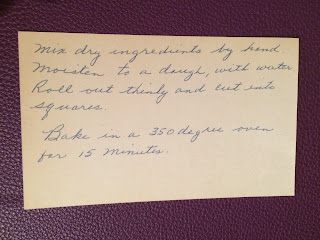 Mix dry ingredients by hand.
Moisten to a dough, with water
Roll out thinly and cut into
squares.
Bake in a 350 degree oven
for 15 minutes.